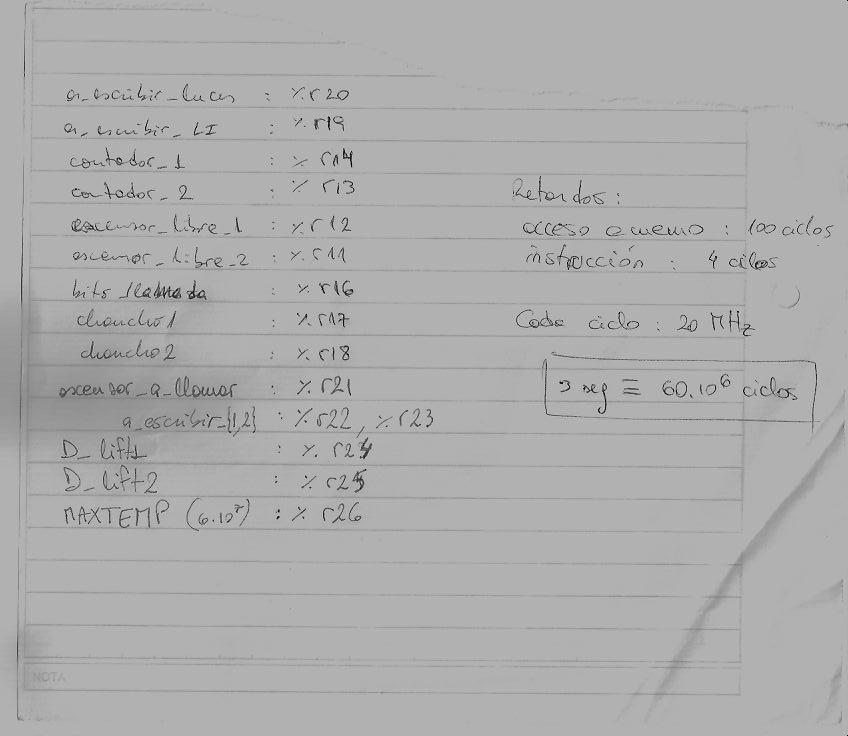 a_escribir_luces : %r20
a_escribir_LI : %r19
contador_1 : % r14
contador_2 : % r13
ascensor_libre_1 : %r12
ascensor_libre_2 : %r11
bits_llamada : %r16
chancho1 : %r17
chancho2 : %r18
ascensor_a_llamar : %r21
a_escribir_{1,2} : %r22, %r23
D_lift1 : %r24
D_lift2 : %r25
MAXTEMP (6.10⁷) : %r26
Retardos :
acceso a memo : 100 ciclos
instrucción : 4 cilos
Cada ciclo : 20 MHz
3 seg ≡ 60.10⁶ ciclos
NOTA